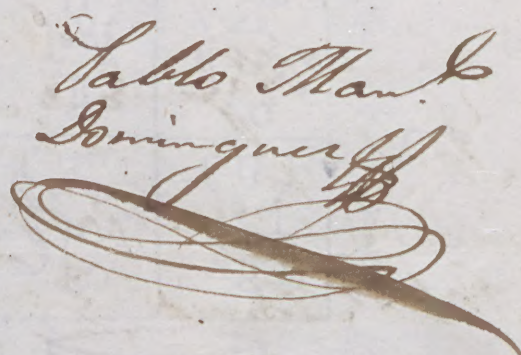 Pablo Man.l
Dominguez